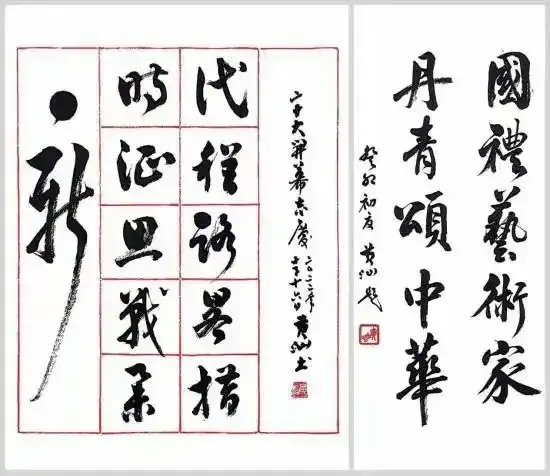 新
時代
征程
思路
戰畧
举措
二十大開幕志慶二〇二二年
十月十六日黄汕书
國禮藝術家
丹青頌中華
癸卯初夏黄汕题